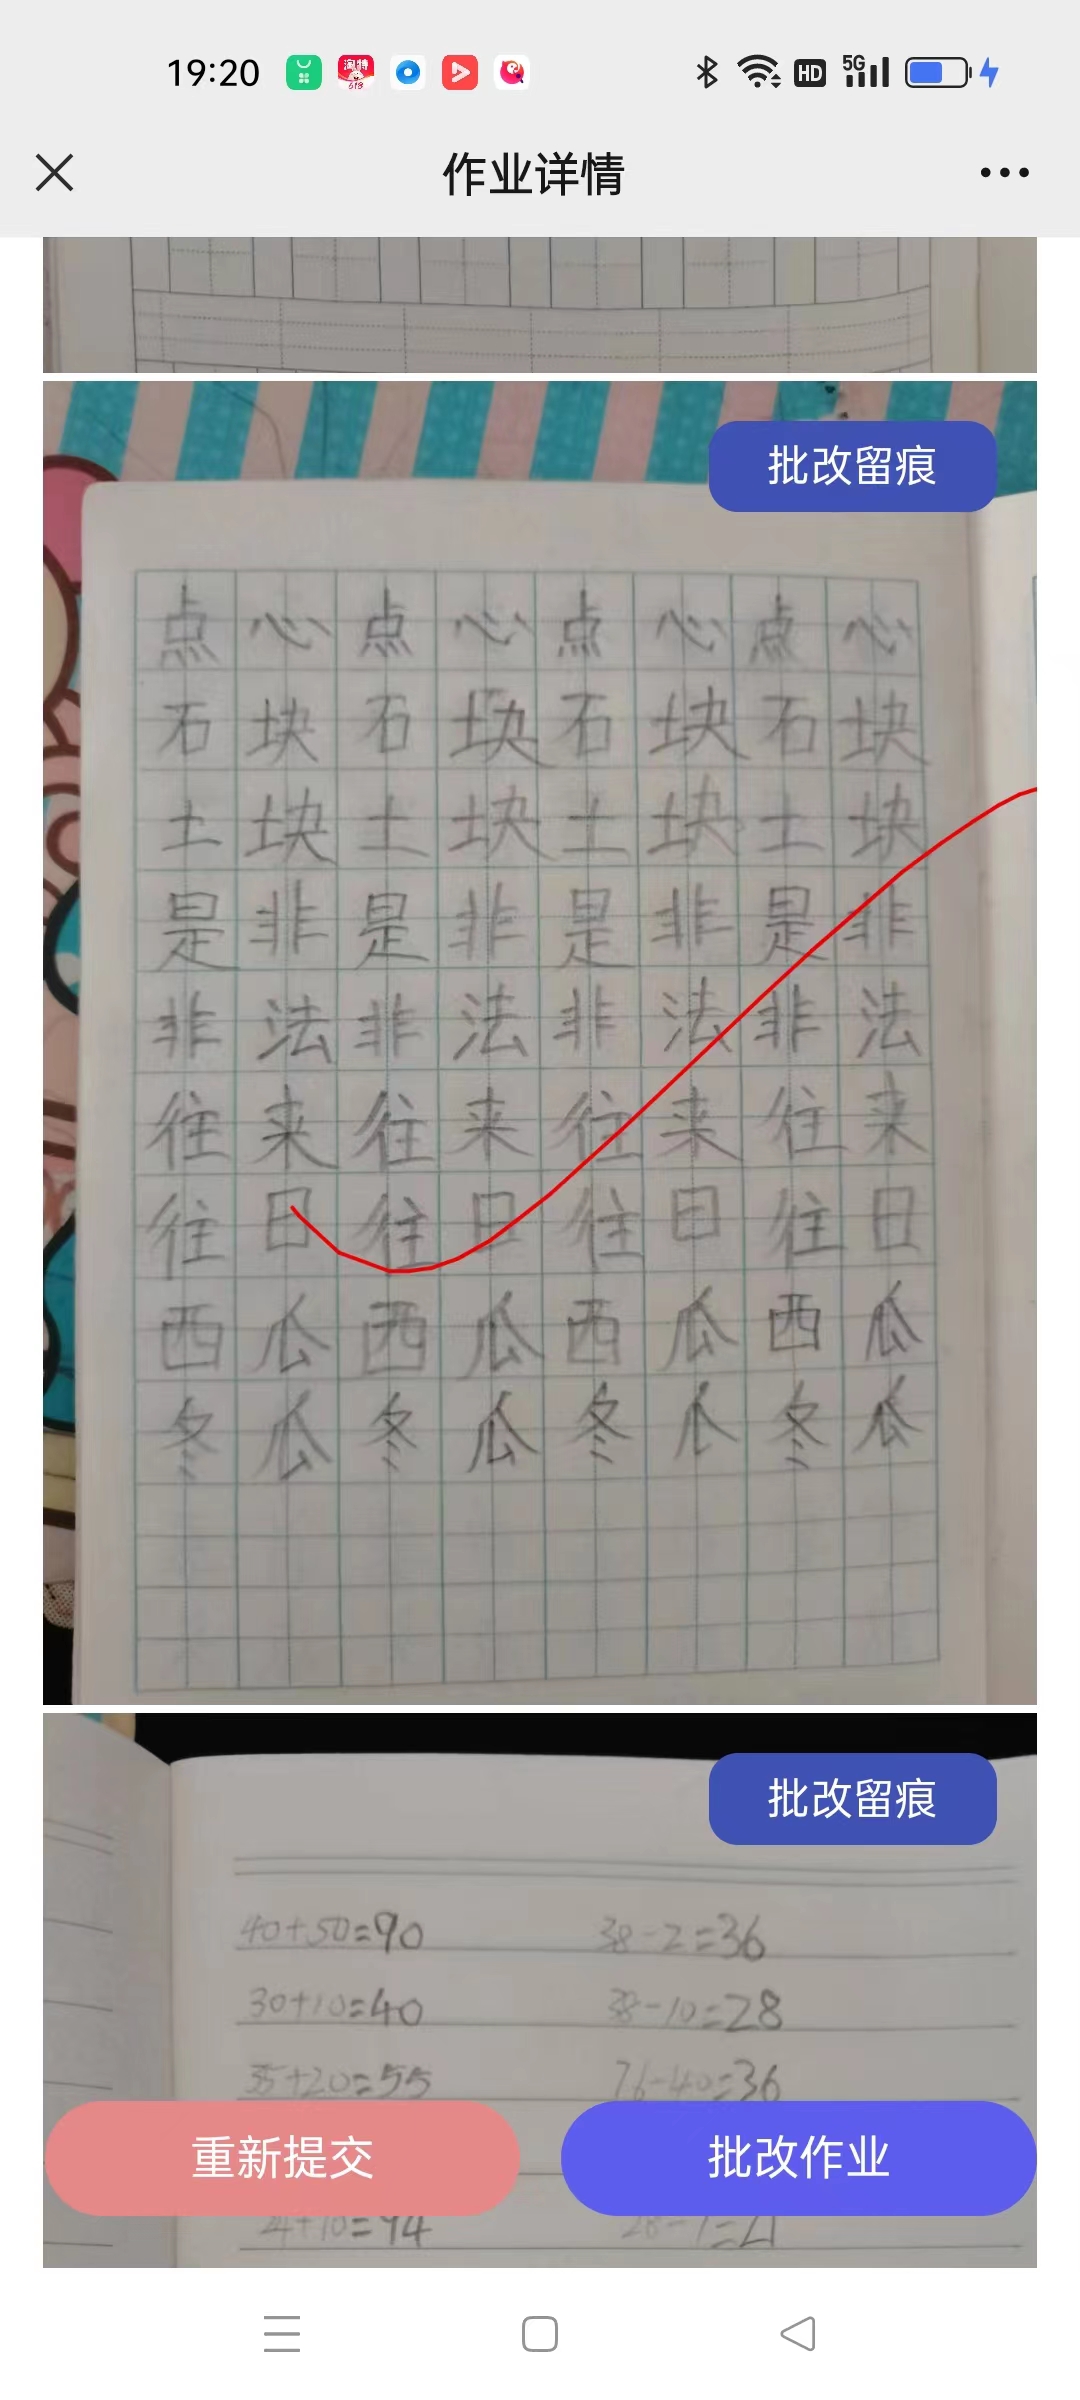 19:20 HD 5G
作业详情
批改留痕
点心点心点心点心
石块石块石块石块
土块土块土块土块
是非是非是非是非
非法非法非法非法
往来往来往来往来
往日往日往日往日
西瓜西瓜西瓜西瓜
冬瓜冬瓜冬瓜冬瓜
批改留痕
40+50=90 38-2=36
30+10=40 38-10=28
35+20=55 76-40=36
重新提交 批改作业